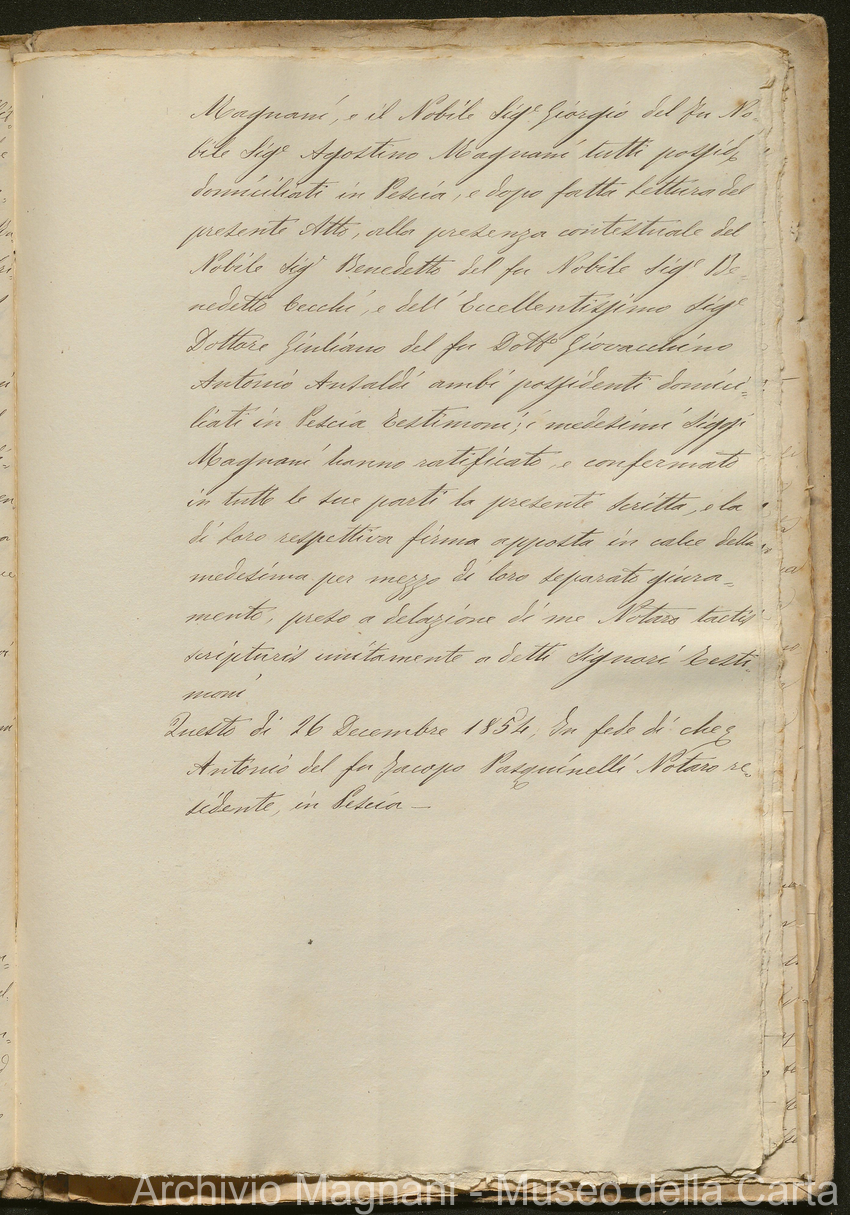 Magnani, e il Nobile Sig.e Giorgio del fu No-
bile Sig.e Agostino Magnani tutti possid.
domiciliati in Pescia, e dopo fatta lettura del
presente Atto, alla presenza contestuale del
Nobile Sig.e Benedetto del fu Nobile Sig.e Be-
nedetto Cecchi, e dell'Eccellentissimo Sig.e
Dottore Giuliano del fu Dott.e Giovacchino
Antonio Ansaldi ambi possidenti domici-
liati in Pescia Testimoni; i medesimi Sigg.i
Magnani hanno ratificato, e confermato
in tutte le sue parti la presente scritta, e la
di loro respettiva firma apposta in calce della
medesima per mezzo di loro separato giura-
mento, preso a delazione di me Notaro tactis
scripturis unitamente a detti Signori Testi-
moni
Questo dì 26 Decembre 1854, In fede di che
Antonio del fu Jacopo Pasquinelli Notaro re-
sidente, in Pescia —
Archivio Magnani - Museo della Carta